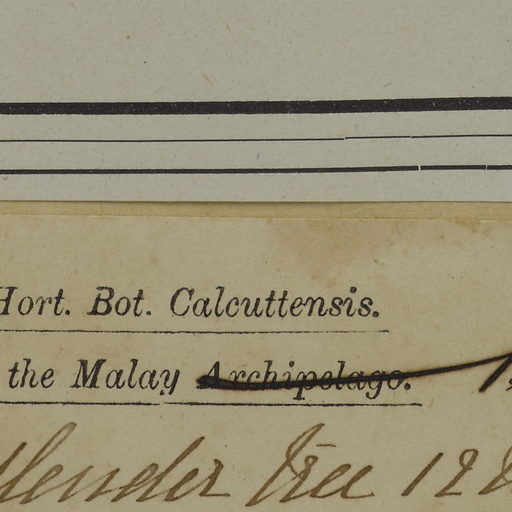 Hort. Bot. Calcuttensis.
the Malay Archipelago.
Slender tree 12